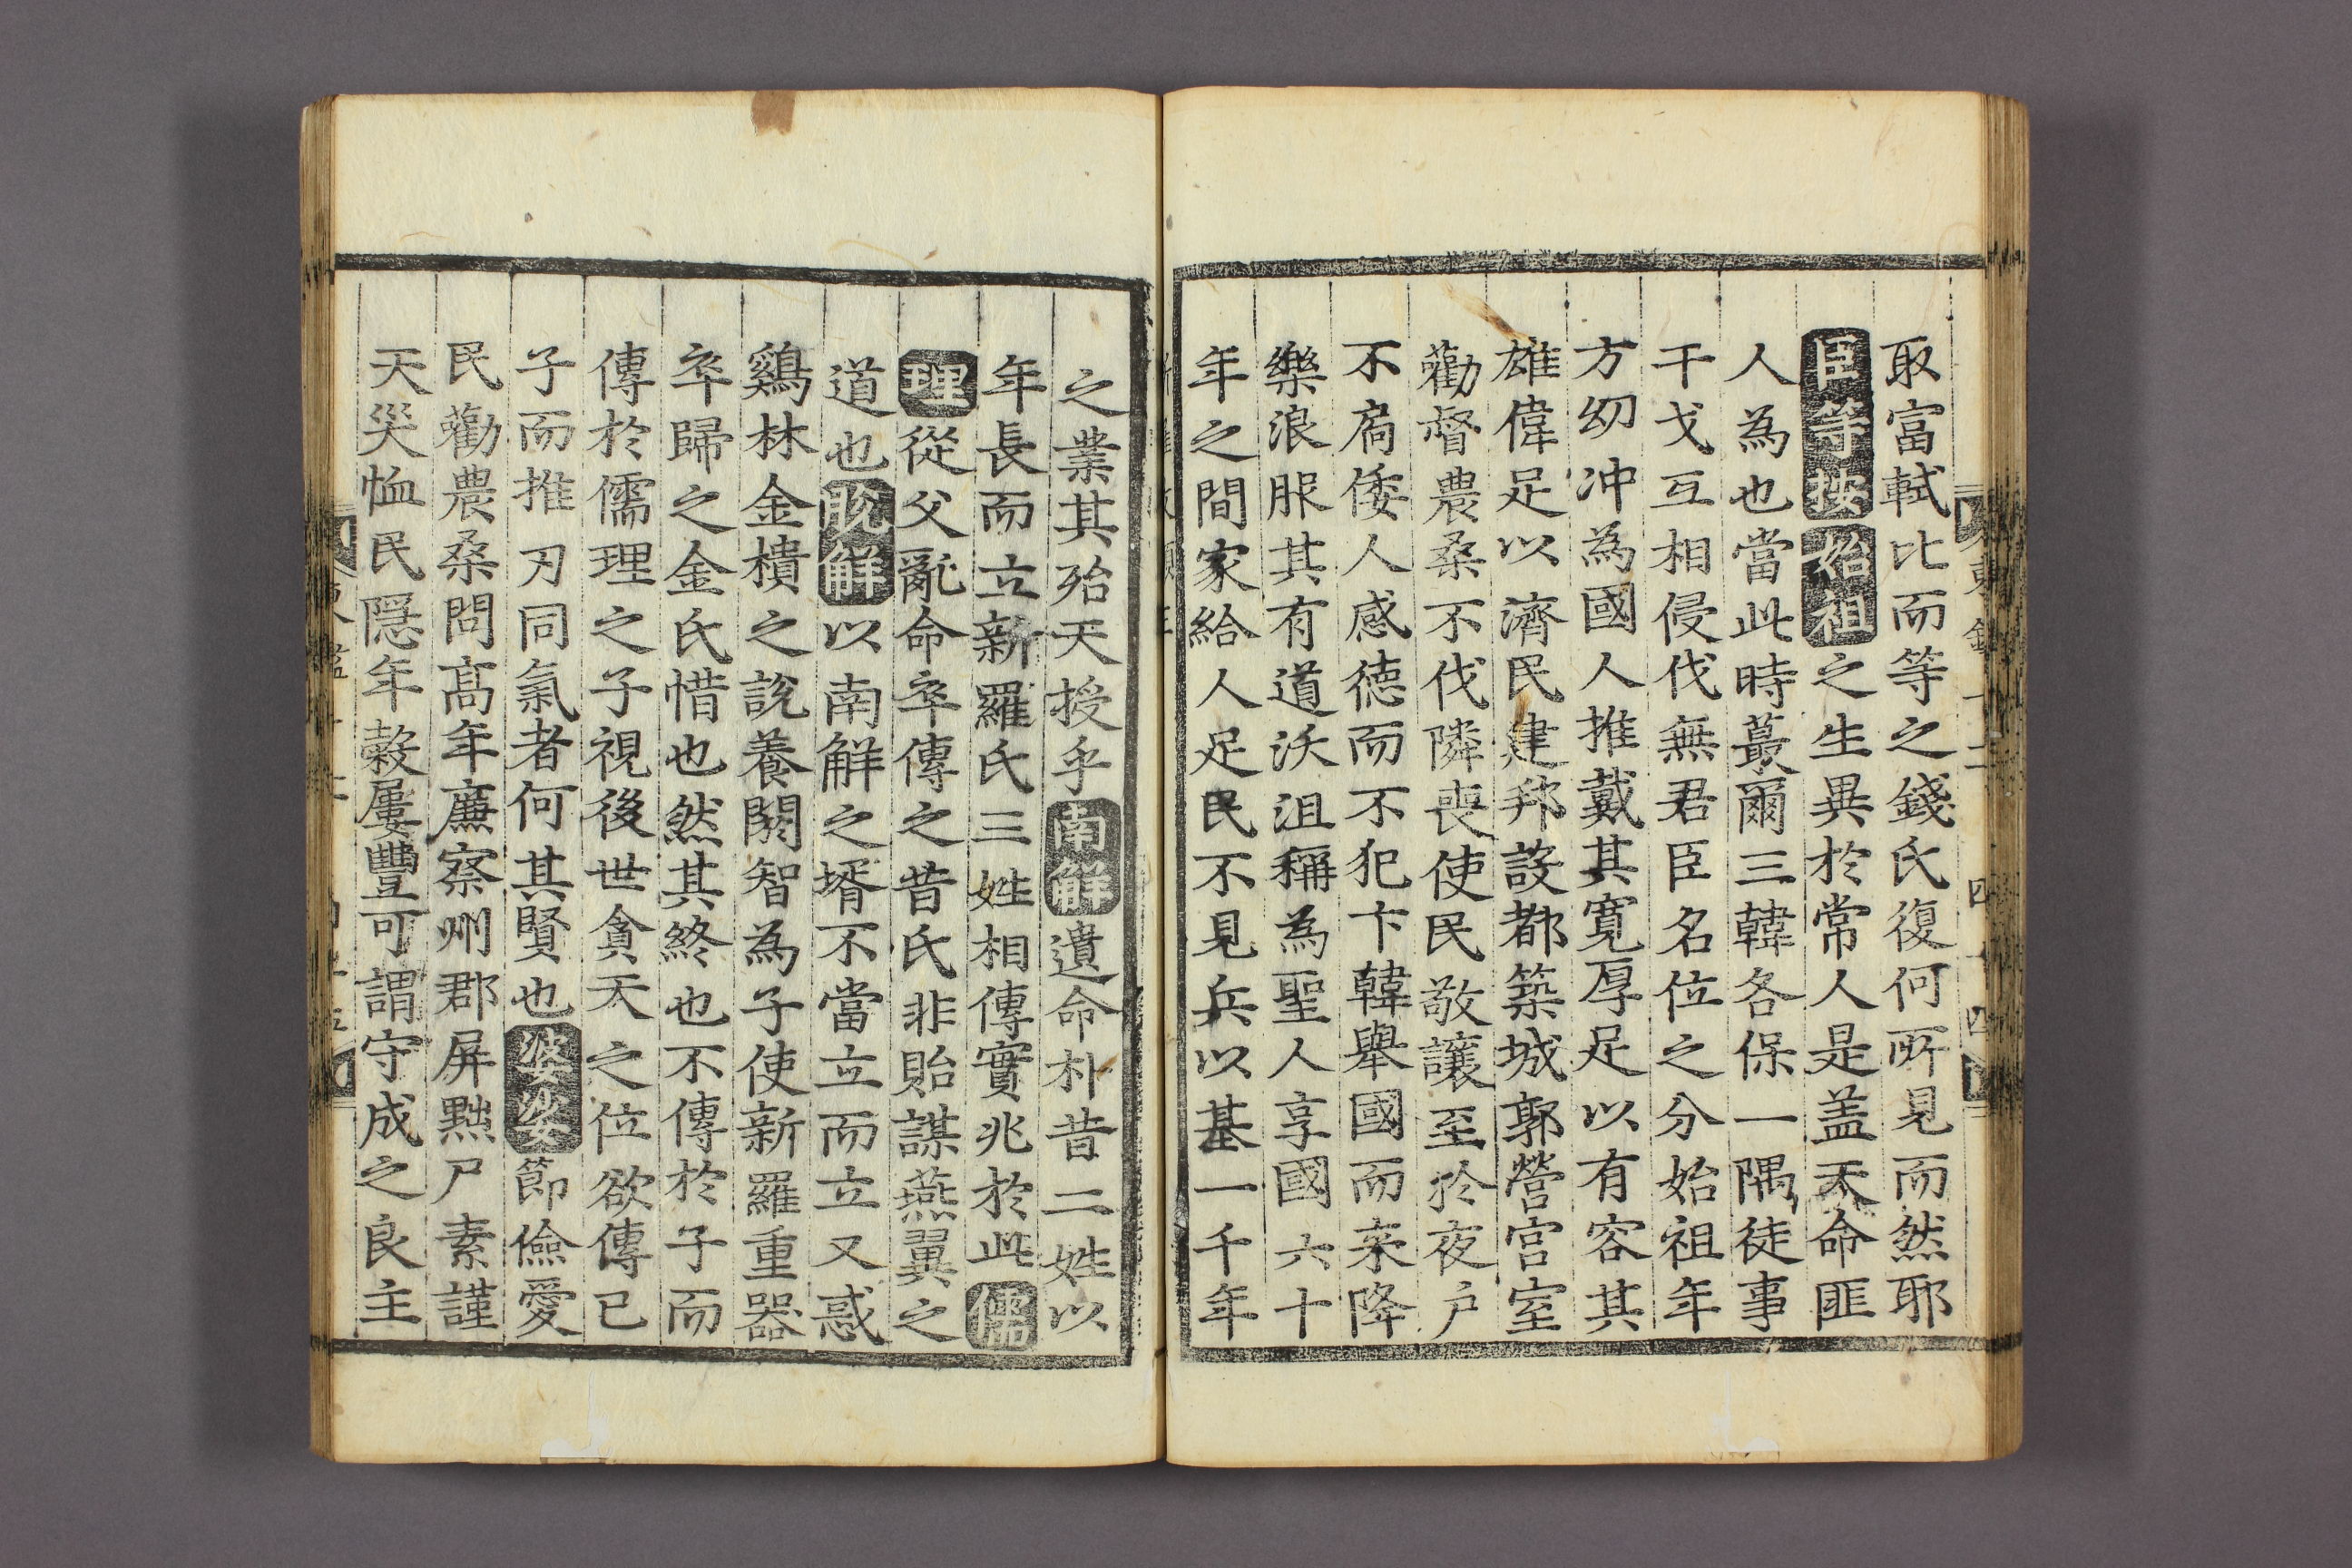 取富軾比而等之錢氏復何所見而然耶
臣等按始祖之生異於常人是盖天命匪
人為也當此時蕞爾三韓各保一隅徒事
干戈互相侵伐無君臣名位之分始祖年
方幼冲為國人推戴其寛厚足以有容其
雄偉足以濟民建邦設都築城郭營宫室
勸督農桑不伐隣喪使民敬讓至於夜户
不扄倭人感德而不犯卞韓舉國而来降
樂浪服其有道沃沮稱為聖人享國六十
年之間家給人足民不見兵以基一千年
之業其殆天授乎南觧遺命朴昔二姓以
年長而立新羅氏三姓相傳實兆於此儒
理從父亂命卒傳之昔氏非貽謀燕翼之
道也脫觧以南觧之壻不當立而立又惑
鷄林金樻之說養閼智為子使新羅重器
卒歸之金氏惜也然其終也不傳於子而
傳於儒理之子視後世貪天之位欲傳已
子而推刃同氣者何其賢也婆娑節儉愛
民勸農桑問髙年廉察州郡屏黜尸素謹
天災恤民隠年糓屢豐可謂守成之良主